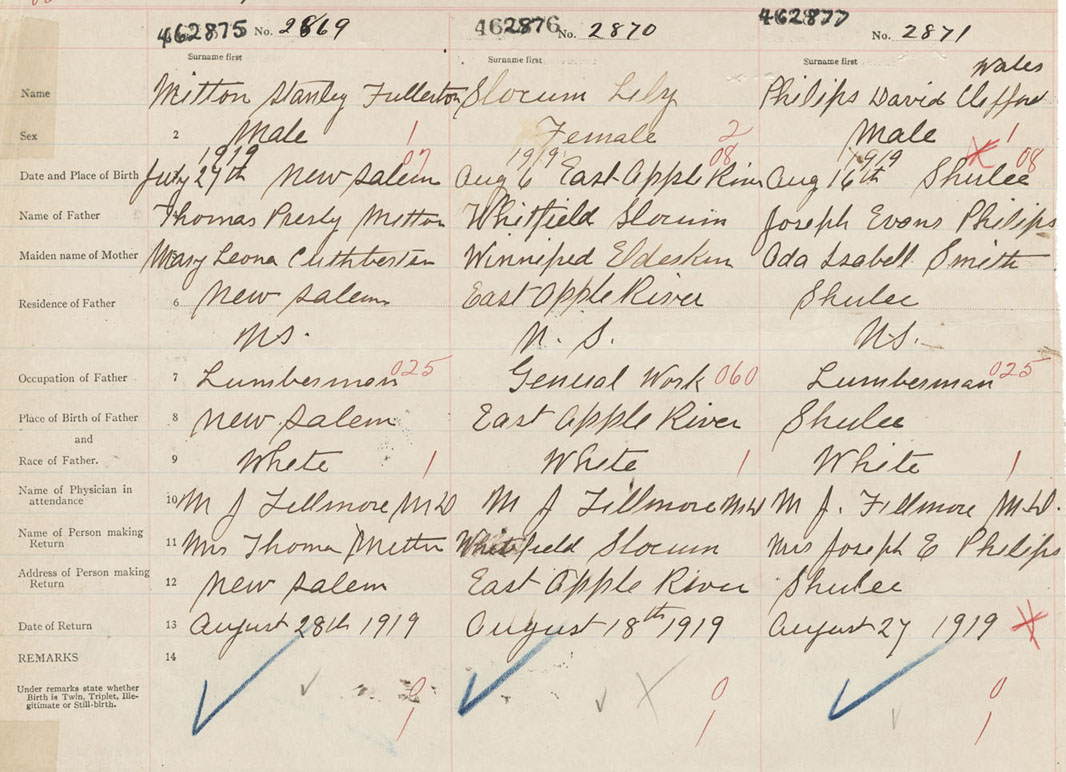 462875 No. 2869 462876 No. 2870 462877 No. 2871
Surname first Surname first Surname first
Wales
Name Mitton Stanley Fullerton Slocum Lily Philips David Clifford
Sex 2 Male 1 Female 2 Male 1
1919 07 1919 08 1919 X 08
Date and Place of Birth July 27th New Salem Aug 6 East Apple River Aug 16th Shulee
Name of Father Thomas Presly Mitton Whitfield Slocum Joseph Evans Philips
Maiden name of Mother Mary Leona Cuthbertson Winnifred Eldeskin Ada Isabell Smith
Residence of Father 6 New Salem East Apple River Shulee
N.S. N. S. N.S.
Occupation of Father 7 Lumberman 025 General Work 060 Lumberman 025
Place of Birth of Father 8 New Salem East Apple River Shulee
and
Race of Father. 9 White 1 White 1 White 1
Name of Physician in
attendance 10 M J Fillmore M.D M J Fillmore M.D M J. Fillmore M.D.
Name of Person making
Return 11 Mrs Thomas Mitton Whitefield Slocum Mrs Joseph E Philips
Address of Person making
Return 12 New Salem East Apple River Shulee
Date of Return 13 August 28th 1919 August 18th 1919 August 27 1919 X
REMARKS 14
Under remarks state whether
Birth is Twin, Triplet, Ille-
gitimate or Still-birth.
0 0 0
1 1 1